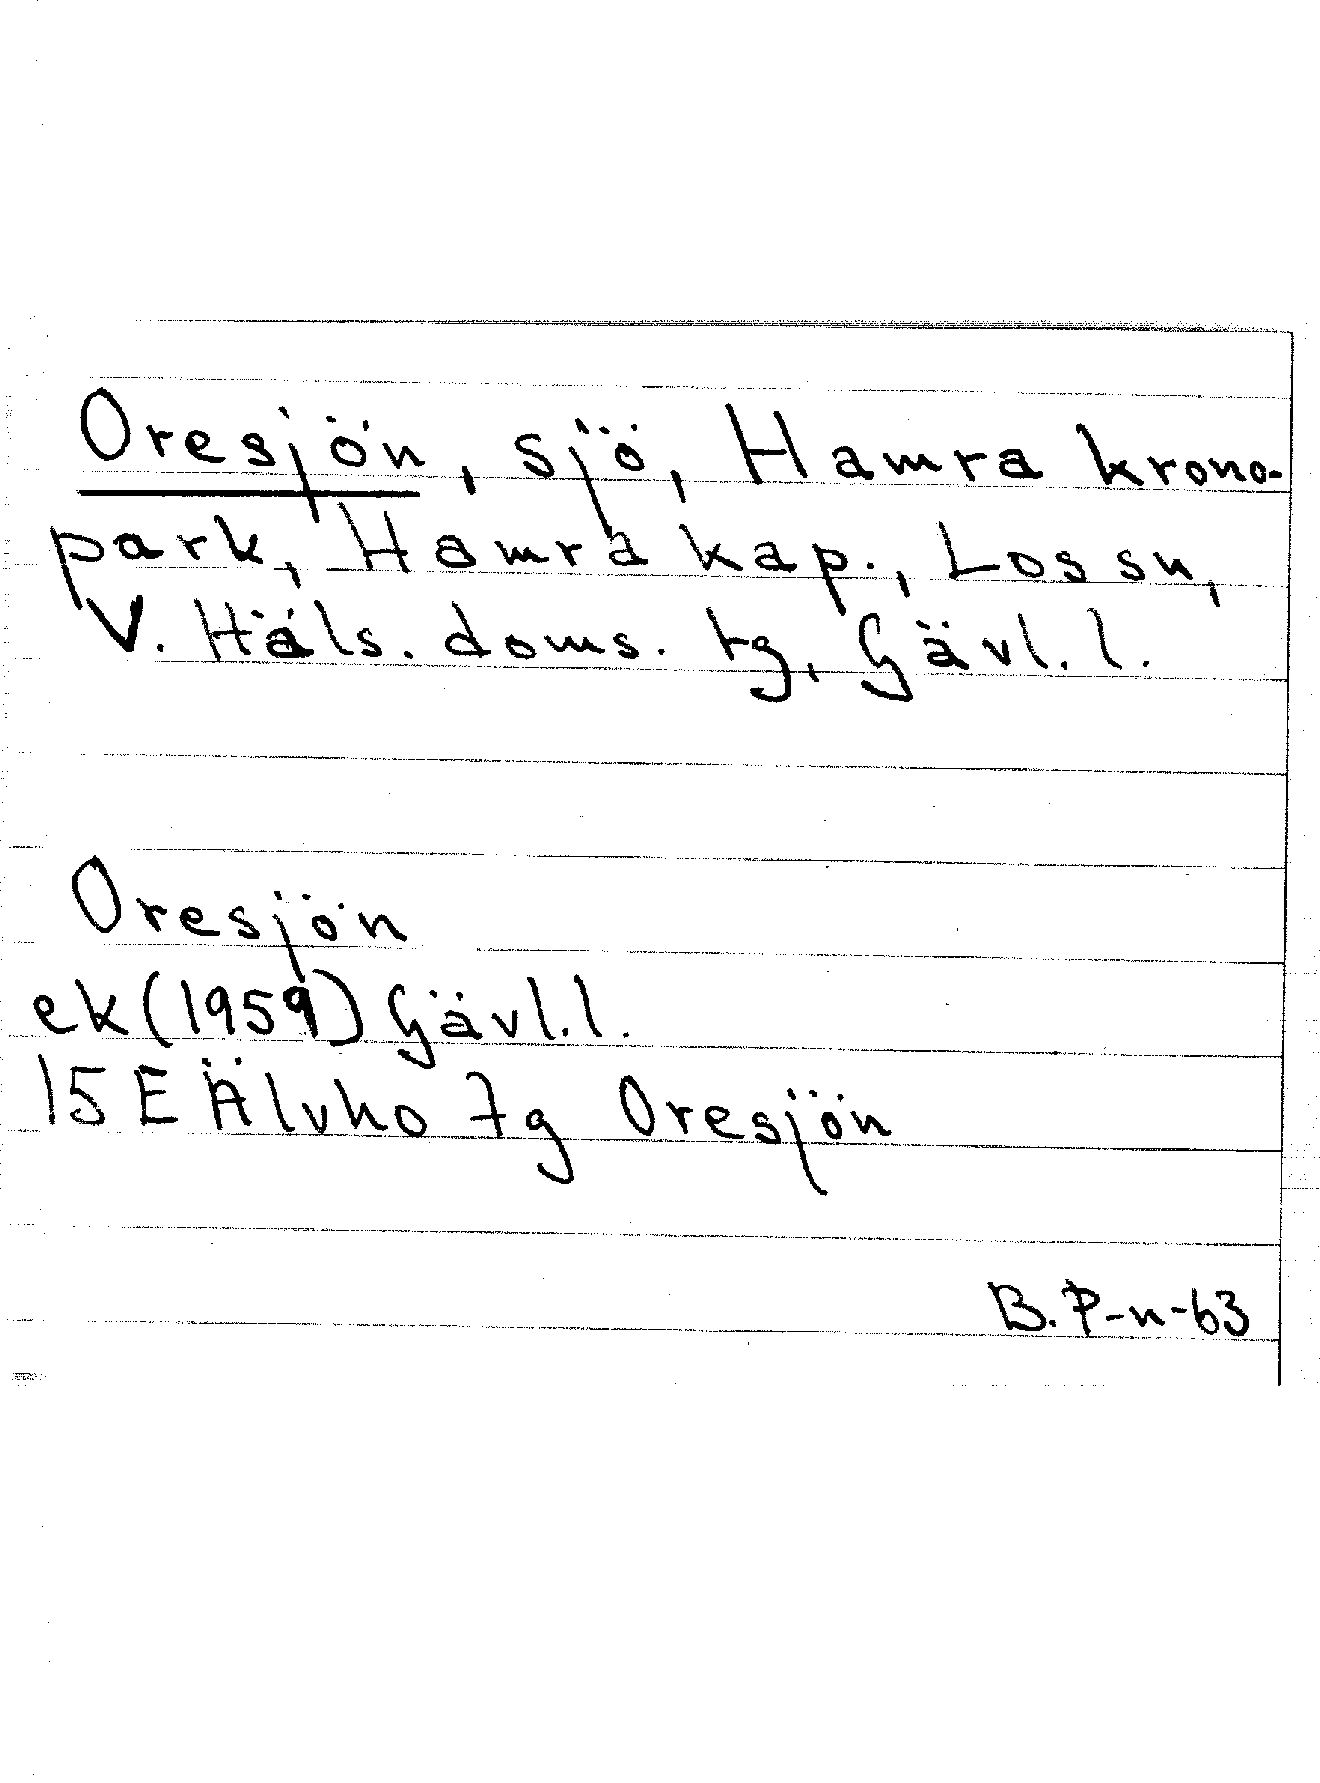 Oresjön, sjö, Hamra krono-
park, Hamra kap., Los sn,
V. Häls. doms. tg, Gävl. l.
Oresjön
ek (1959) Gävl. l.
15 E Älvho 7g Oresjön
B. P-n-63